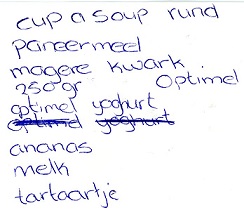 cup a soup rund
paneermeel
magere kwark
250gr Optimel
optimel yoghurt
optimel yoghurt
ananas
melk
tartaartje